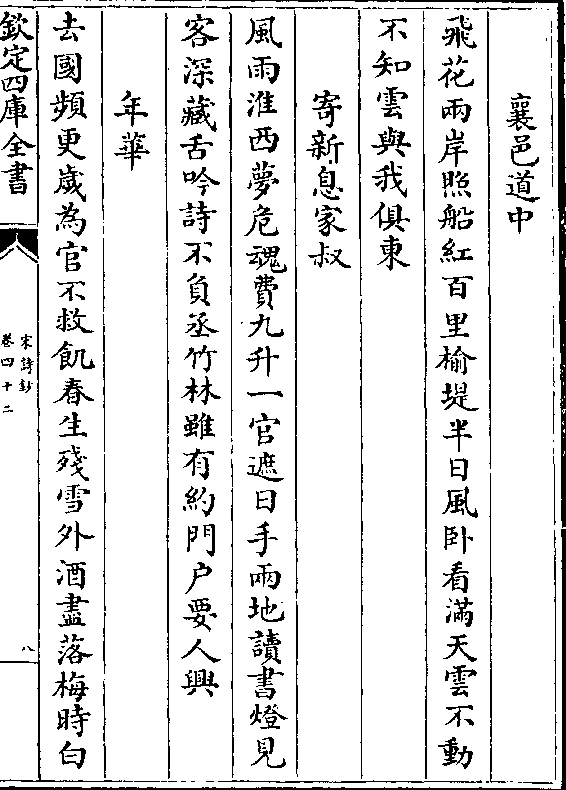 襄邑道中
飛花兩岸照船紅百里榆堤半日風卧看滿天雲不動
不知雲與我俱東
寄新息家叔
風雨淮西夢危魂費九升一官遮日手兩地讀書燈見
客深藏舌吟詩不負丞竹林雖有約門户要人興
年華
去國頻更歲為官不救飢春生殘雪外酒盡落梅時白
欽定四庫全書
宋詩鈔
卷四十二
八